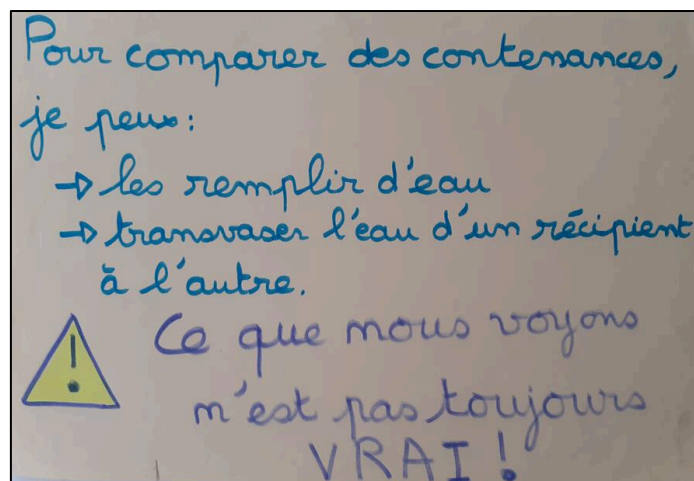 Pour comparer des contenances,
je peux:
→ les remplir d'eau
→ transvaser l'eau d'un récipient
à l'autre.
! Ce que nous voyons
n'est pas toujours
VRAI !